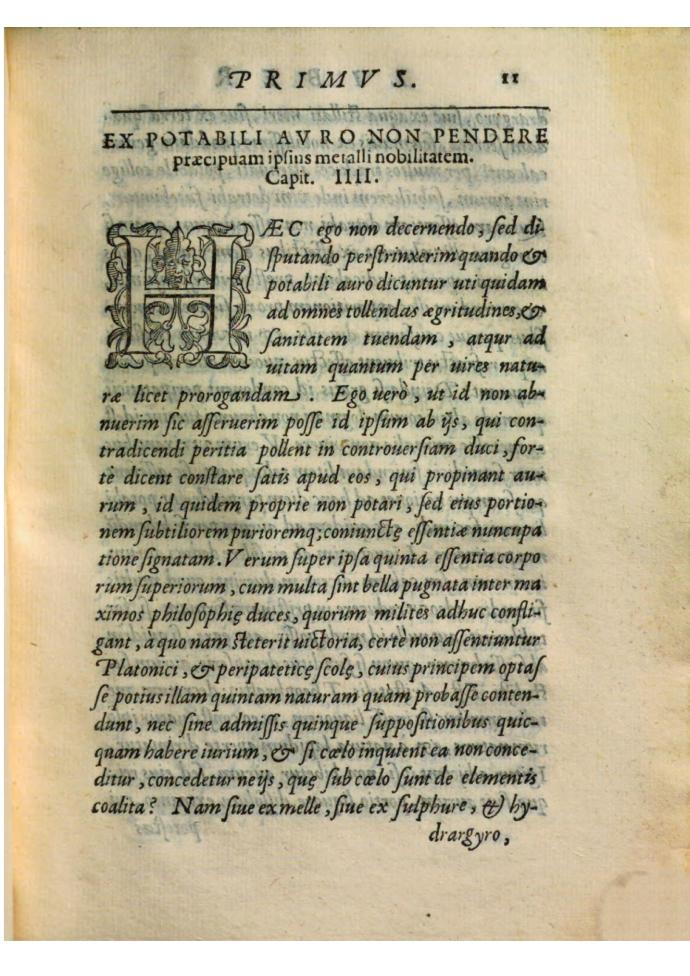 PRIMVS. 11
EX POTABILI AVRO NON PENDERE
præcipuam ipsius metalli nobilitatem.
Capit. IIII.
HÆC ego non decernendo, sed di-
sputando perstrinxerim quando &
potabili auro dicuntur uti quidam
ad omnes tollendas ægritudines, &
sanitatem tuendam, atqur ad
uitam quantum per uires natu-
ræ licet prorogandam. Ego uerò, ut id non ab-
nuerim sic asseruerim posse id ipsum ab ijs, qui con-
tradicendi peritia pollent in controuersiam duci, for-
tè dicent constare satis apud eos, qui propinant au-
rum, id quidem proprie non potari, sed eius portio-
nem subtiliorem purioremq; coniunctę essentiæ nuncupa
tione signatam. Verum super ipsa quinta essentia corpo
rum superiorum, cum multa sint bella pugnata inter ma
ximos philosophię duces, quorum milites adhuc confli-
gant, à quo nam steterit uictoria, certè non assentiuntur
Platonici, & peripateticę scolę, cuius principem optas
se potius illam quintam naturam quàm probasse conten-
dunt, nec sine admissis quinque suppositionibus quic-
quam habere iurium, & si cælo inquient ea non conce-
ditur, concedetur ne ijs, quę sub cælo sunt de elementis
coalita? Nam siue ex melle, siue ex sulphure, & hy-
drargyro,